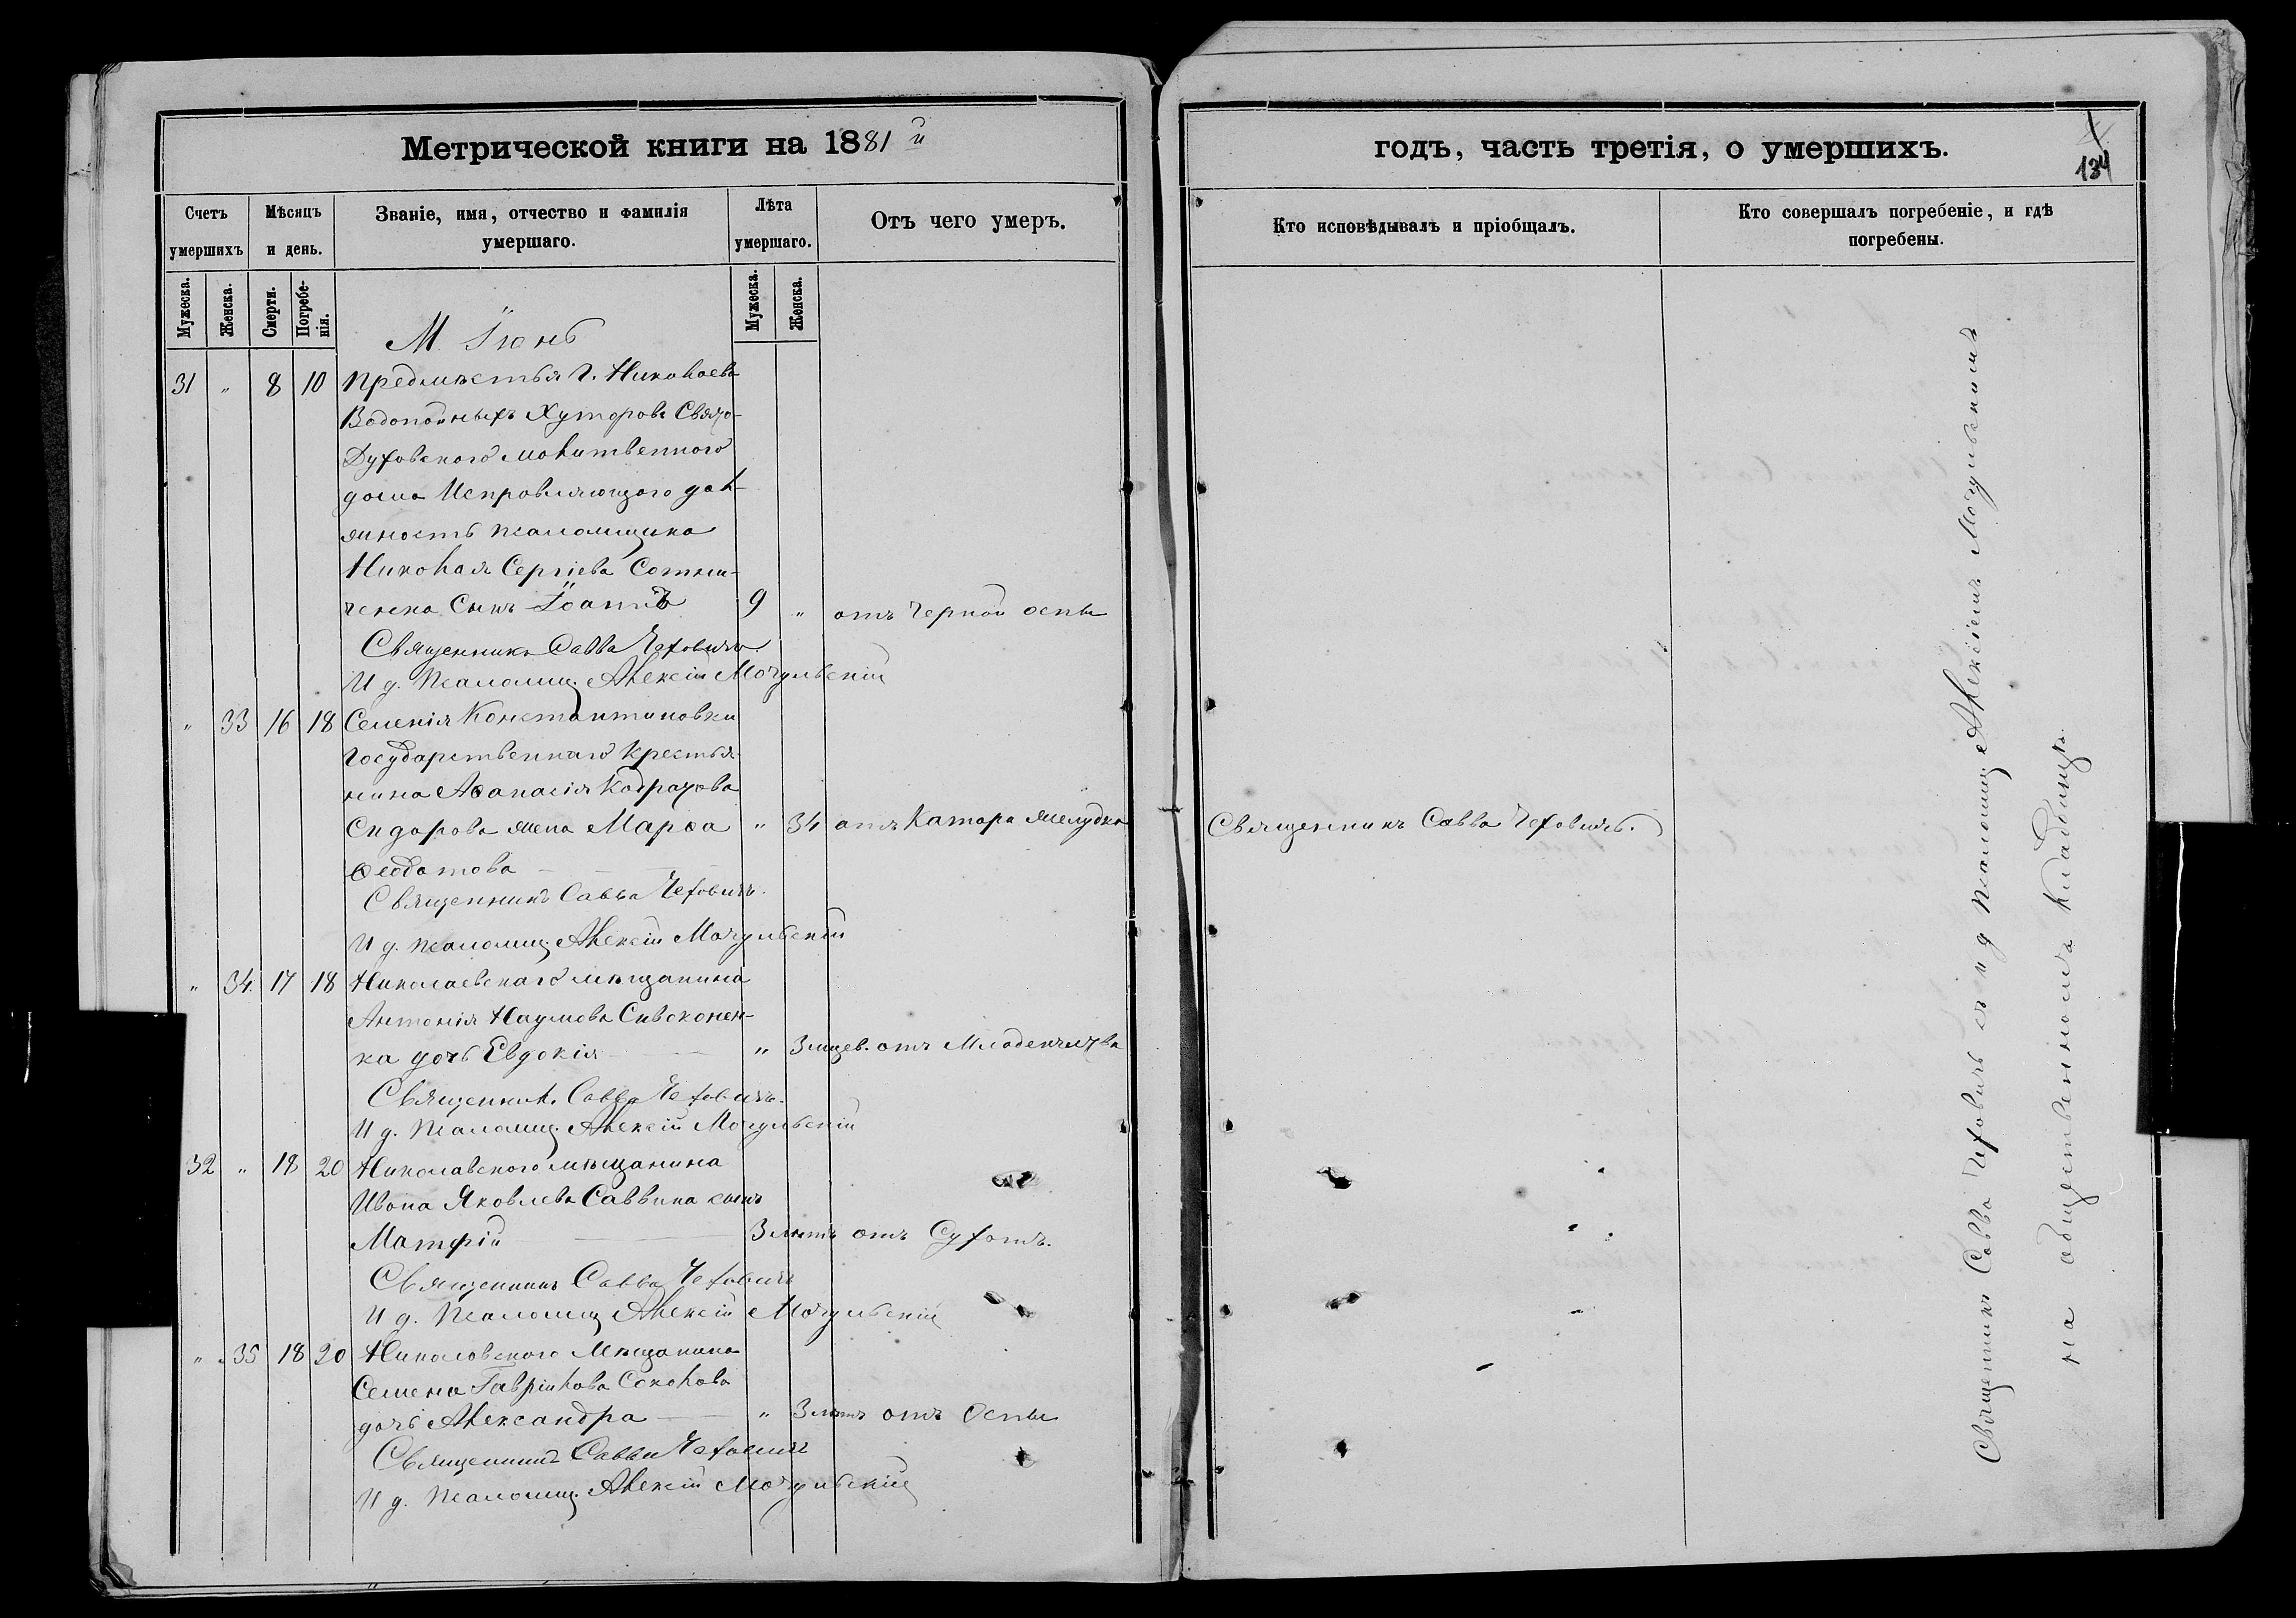 Метрической книги на 1881й
Счетъ умершихъ
Мѣсяцъ и день.
Званіе, имя, отчество и фамилія умершаго.
Лѣта умершаго.
Отъ чего умеръ.
Мужеска.
Женска.
Смерти.
Погребенія.
Мужеска.
Женска.
М. Іюнь
31 " 8 10 Предмѣстья г. Николаева
Водопойныхъ Хуторовъ Свято-
Духовскаго молитвеннаго
дома Исправляющаго дол-
жность псаломщика
Николая Сергіева Сотни-
ченка сынъ Іоаннъ 9 " отъ Черной оспы
Священникъ Савва Чехович
И д. псаломщ. Алексій Мочульскій
" 33 16 18 Селенія Константиновки
Государственнаго крестья-
нина Аѳанасія Кодратова
Сидорова жена Марѳа " 34 отъ катара желудка
Ѳеодотова
Священникъ Савва Чеховичъ.
И д. псаломщ. Алексій Мочульскій
" 34. 17 18 Николаевскаго мѣщанина
Антонія Наумова Сивоконен-
ка дочь Евдокія " 3 мцев. отъ Младенчества
Священник. Савва Чеховичъ.
И д. псаломщ. Алексій Мочульскій
32 " 18 20 Николавского мѣщанина
Ивана Яковлева Саввина сынъ
Матфій 3 лѣтъ отъ Сухотъ.
Священникъ Савва Чеховичъ
И д. псаломщ Алексій Мочульскій
" 35 18 20 Николовского мѣщанина
Семена Гавріилова Соколова
дочь Александра " 3 лѣтъ отъ Оспы
Священникъ Савва Чеховичъ
И д. псаломщ. Алексій Мочульскій
годъ, часть третія, о умершихъ.
134
Кто исповѣдывалъ и пріобщалъ.
Кто совершалъ погребеніе, и гдѣ погребены.
Священникъ Савва Чеховичъ.
Священникъ Савва Чеховичъ съ и д псаломщ. Алексіемъ Мочульскимъ
на общественномъ кладбищѣ.